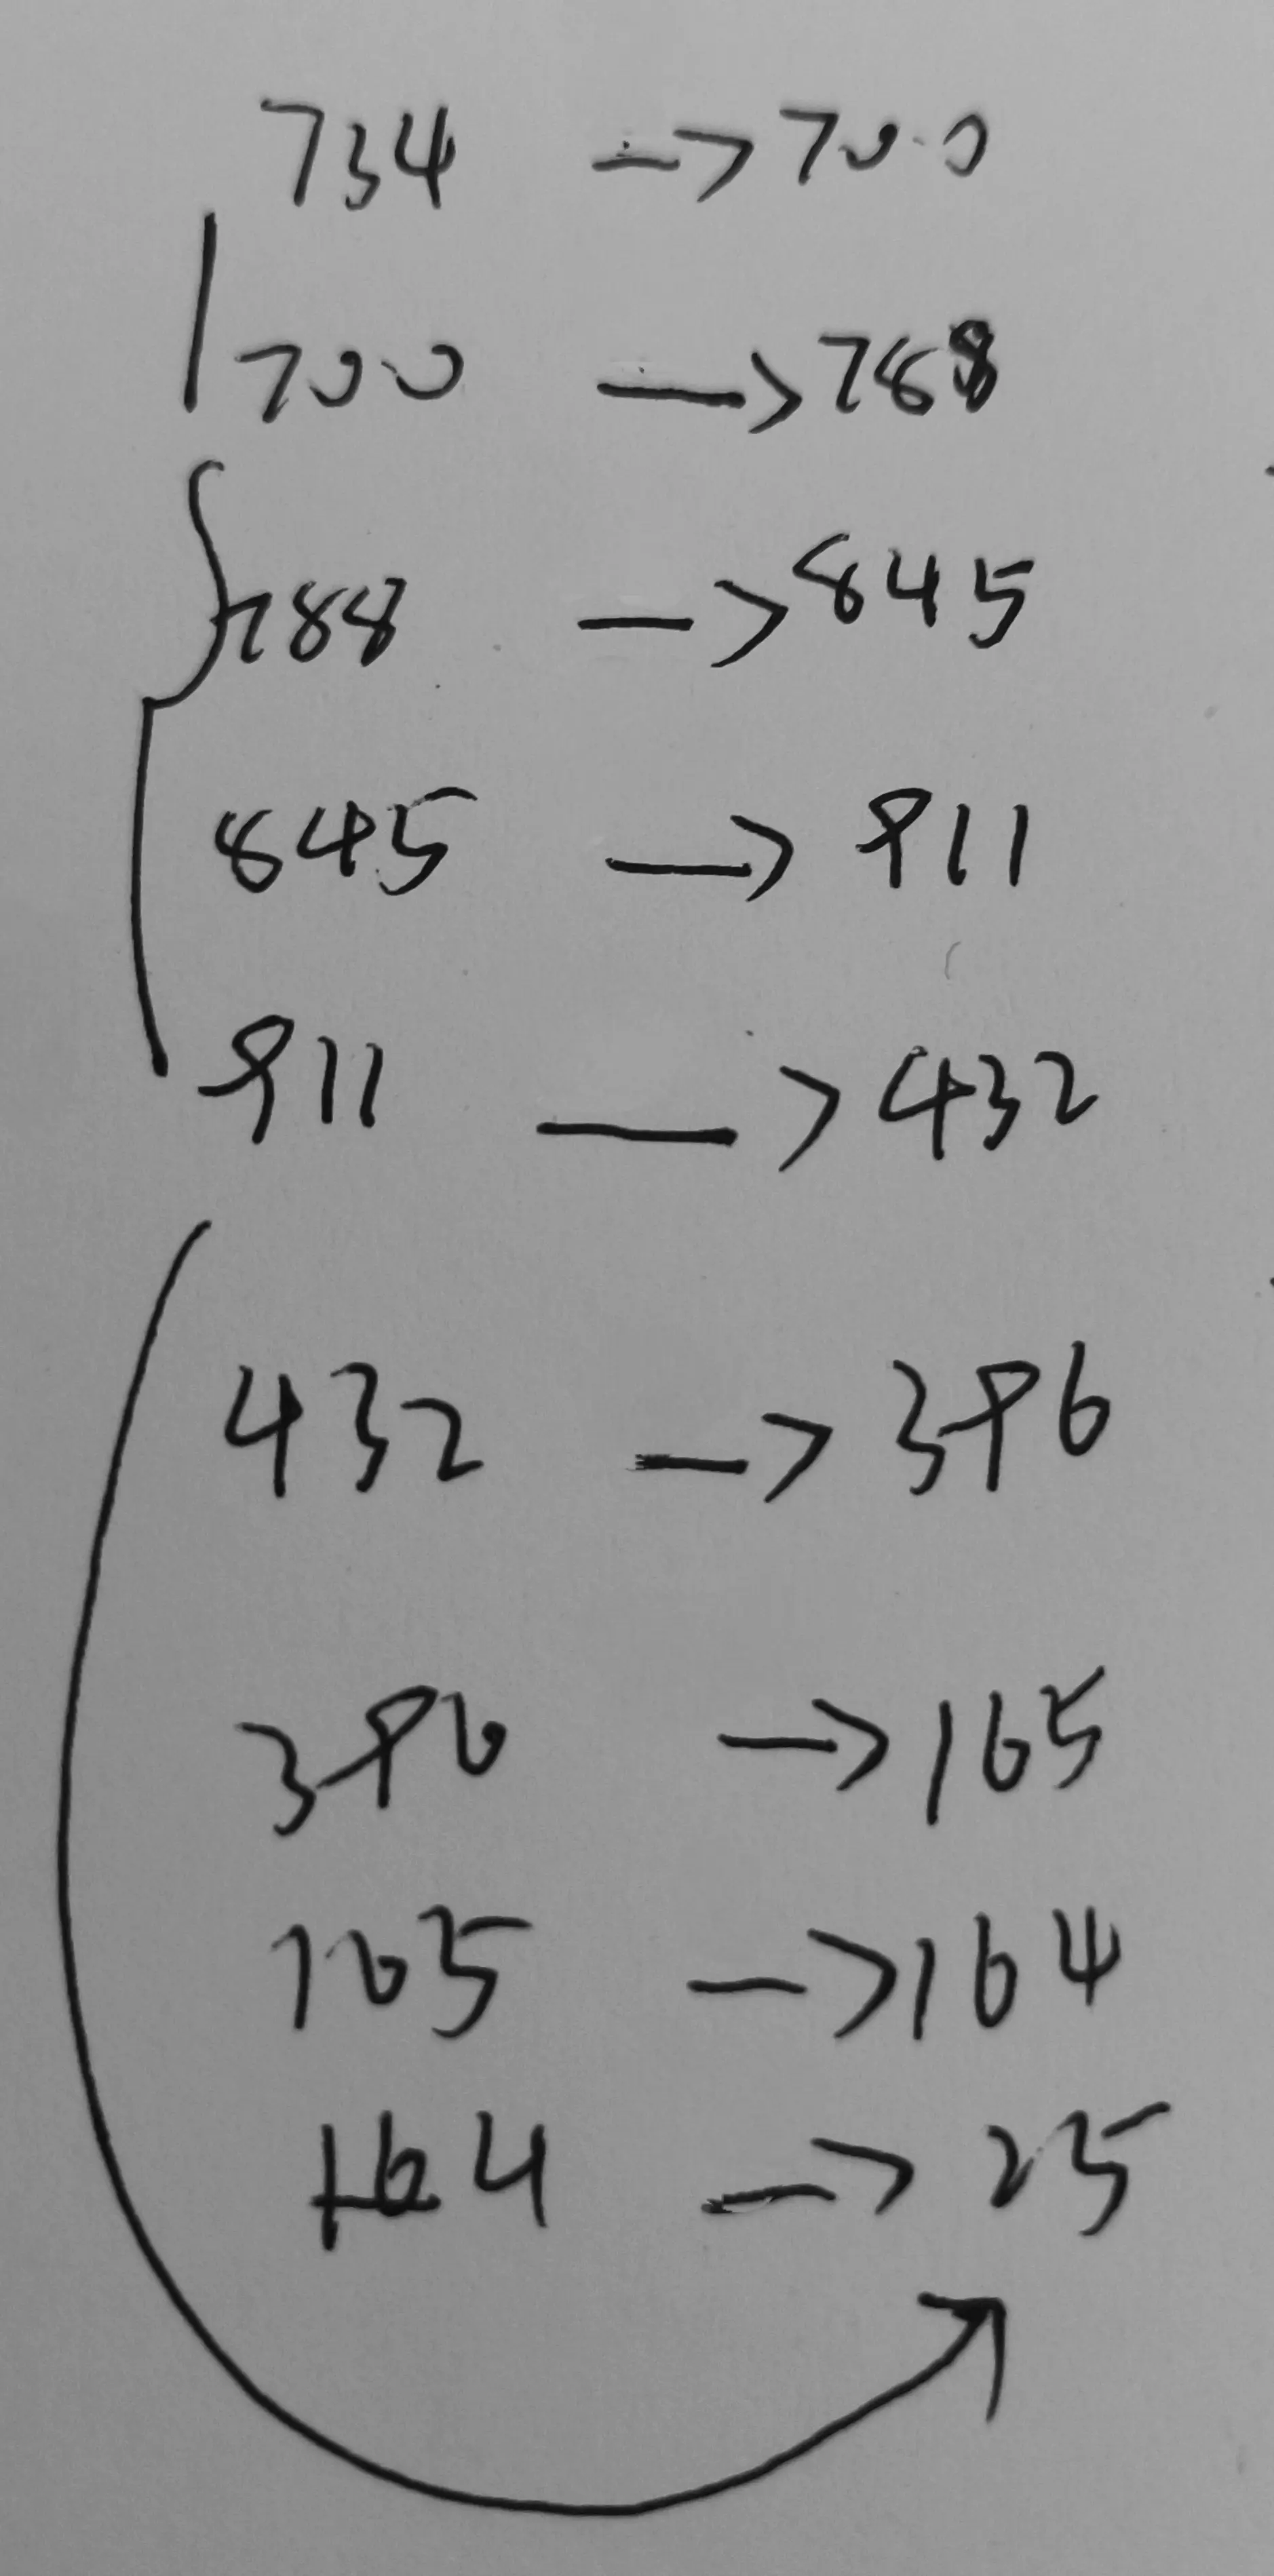 734 -> 700
700 -> 788
788 -> 845
845 -> 911
911 -> 432
432 -> 396
396 -> 165
165 -> 164
164 -> 25